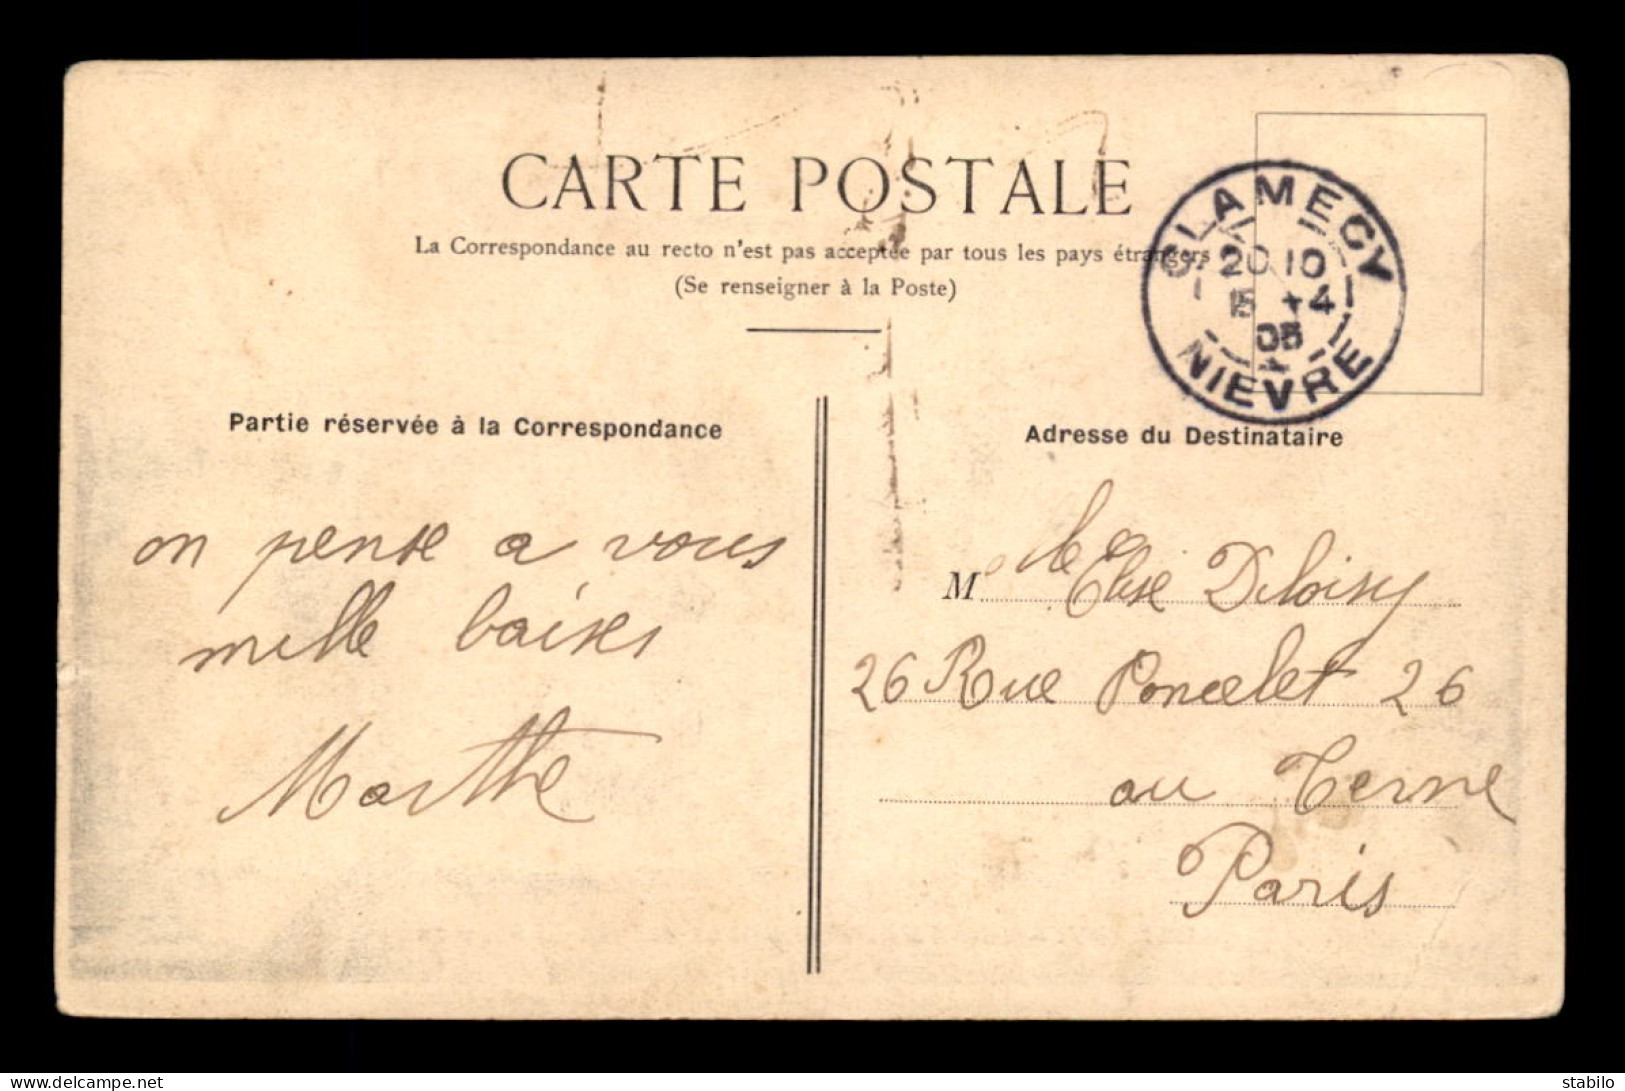 CARTE POSTALE
La Correspondance au recto n'est pas acceptée par tous les pays étrangers
(Se renseigner à la Poste)
CLAMECY
20 10
15 4
05
NIEVRE
Partie réservée à la Correspondance
on pense a vous
mille baises
Marthe
Adresse du Destinataire
M lle Elise Deloisy
26 Rue Poncelet 26
au Terne
Paris
www.delcampe.net
stabilo